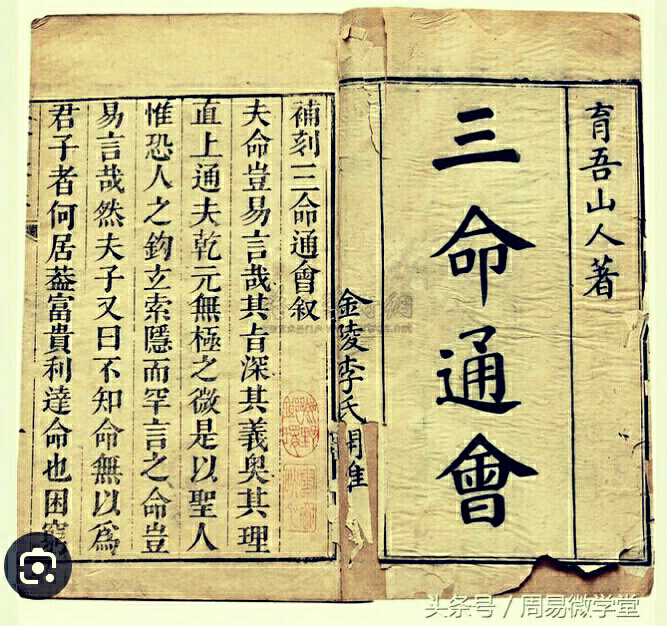 育吾山人著
三命通會
金陵李氏
補刻三命通會叙
夫命豈易言哉其旨深其義奥其理
直上通夫乾元無極之微是以聖人
惟恐人之鈎玄索隱而罕言之命豈
易言哉然夫子又曰不知命無以爲
君子者何居葢富貴利達命也困窮
头条号 / 周易微学堂